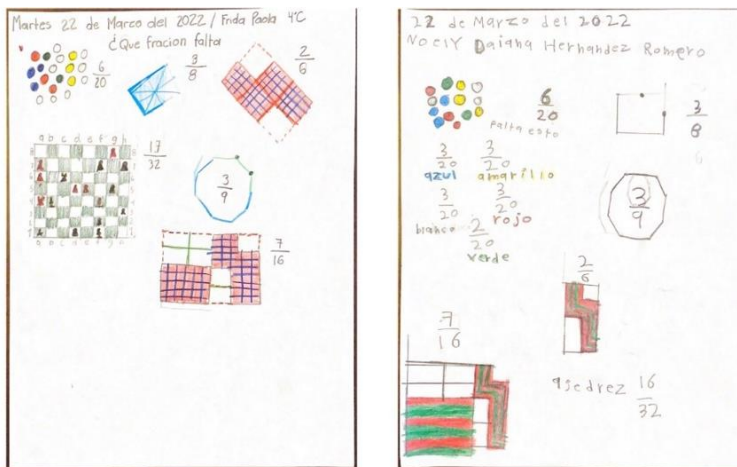 Martes 22 de Marco del 2022 / Frida Paola 4°C
¿Que fracion falta
6/20
3/8
2/6
a b c d e f g h
17/32
3/9
a b c d e f g h
7/16
22 de Marzo del 2022
Noely Daiana Hernandez Romero
6/20
falta esto
3/8
3/20 3/20
azul amarillo
3/20 3/20
blanco rojo
2/20
verde
3/9
2/6
7/16
ajedrez 16/32